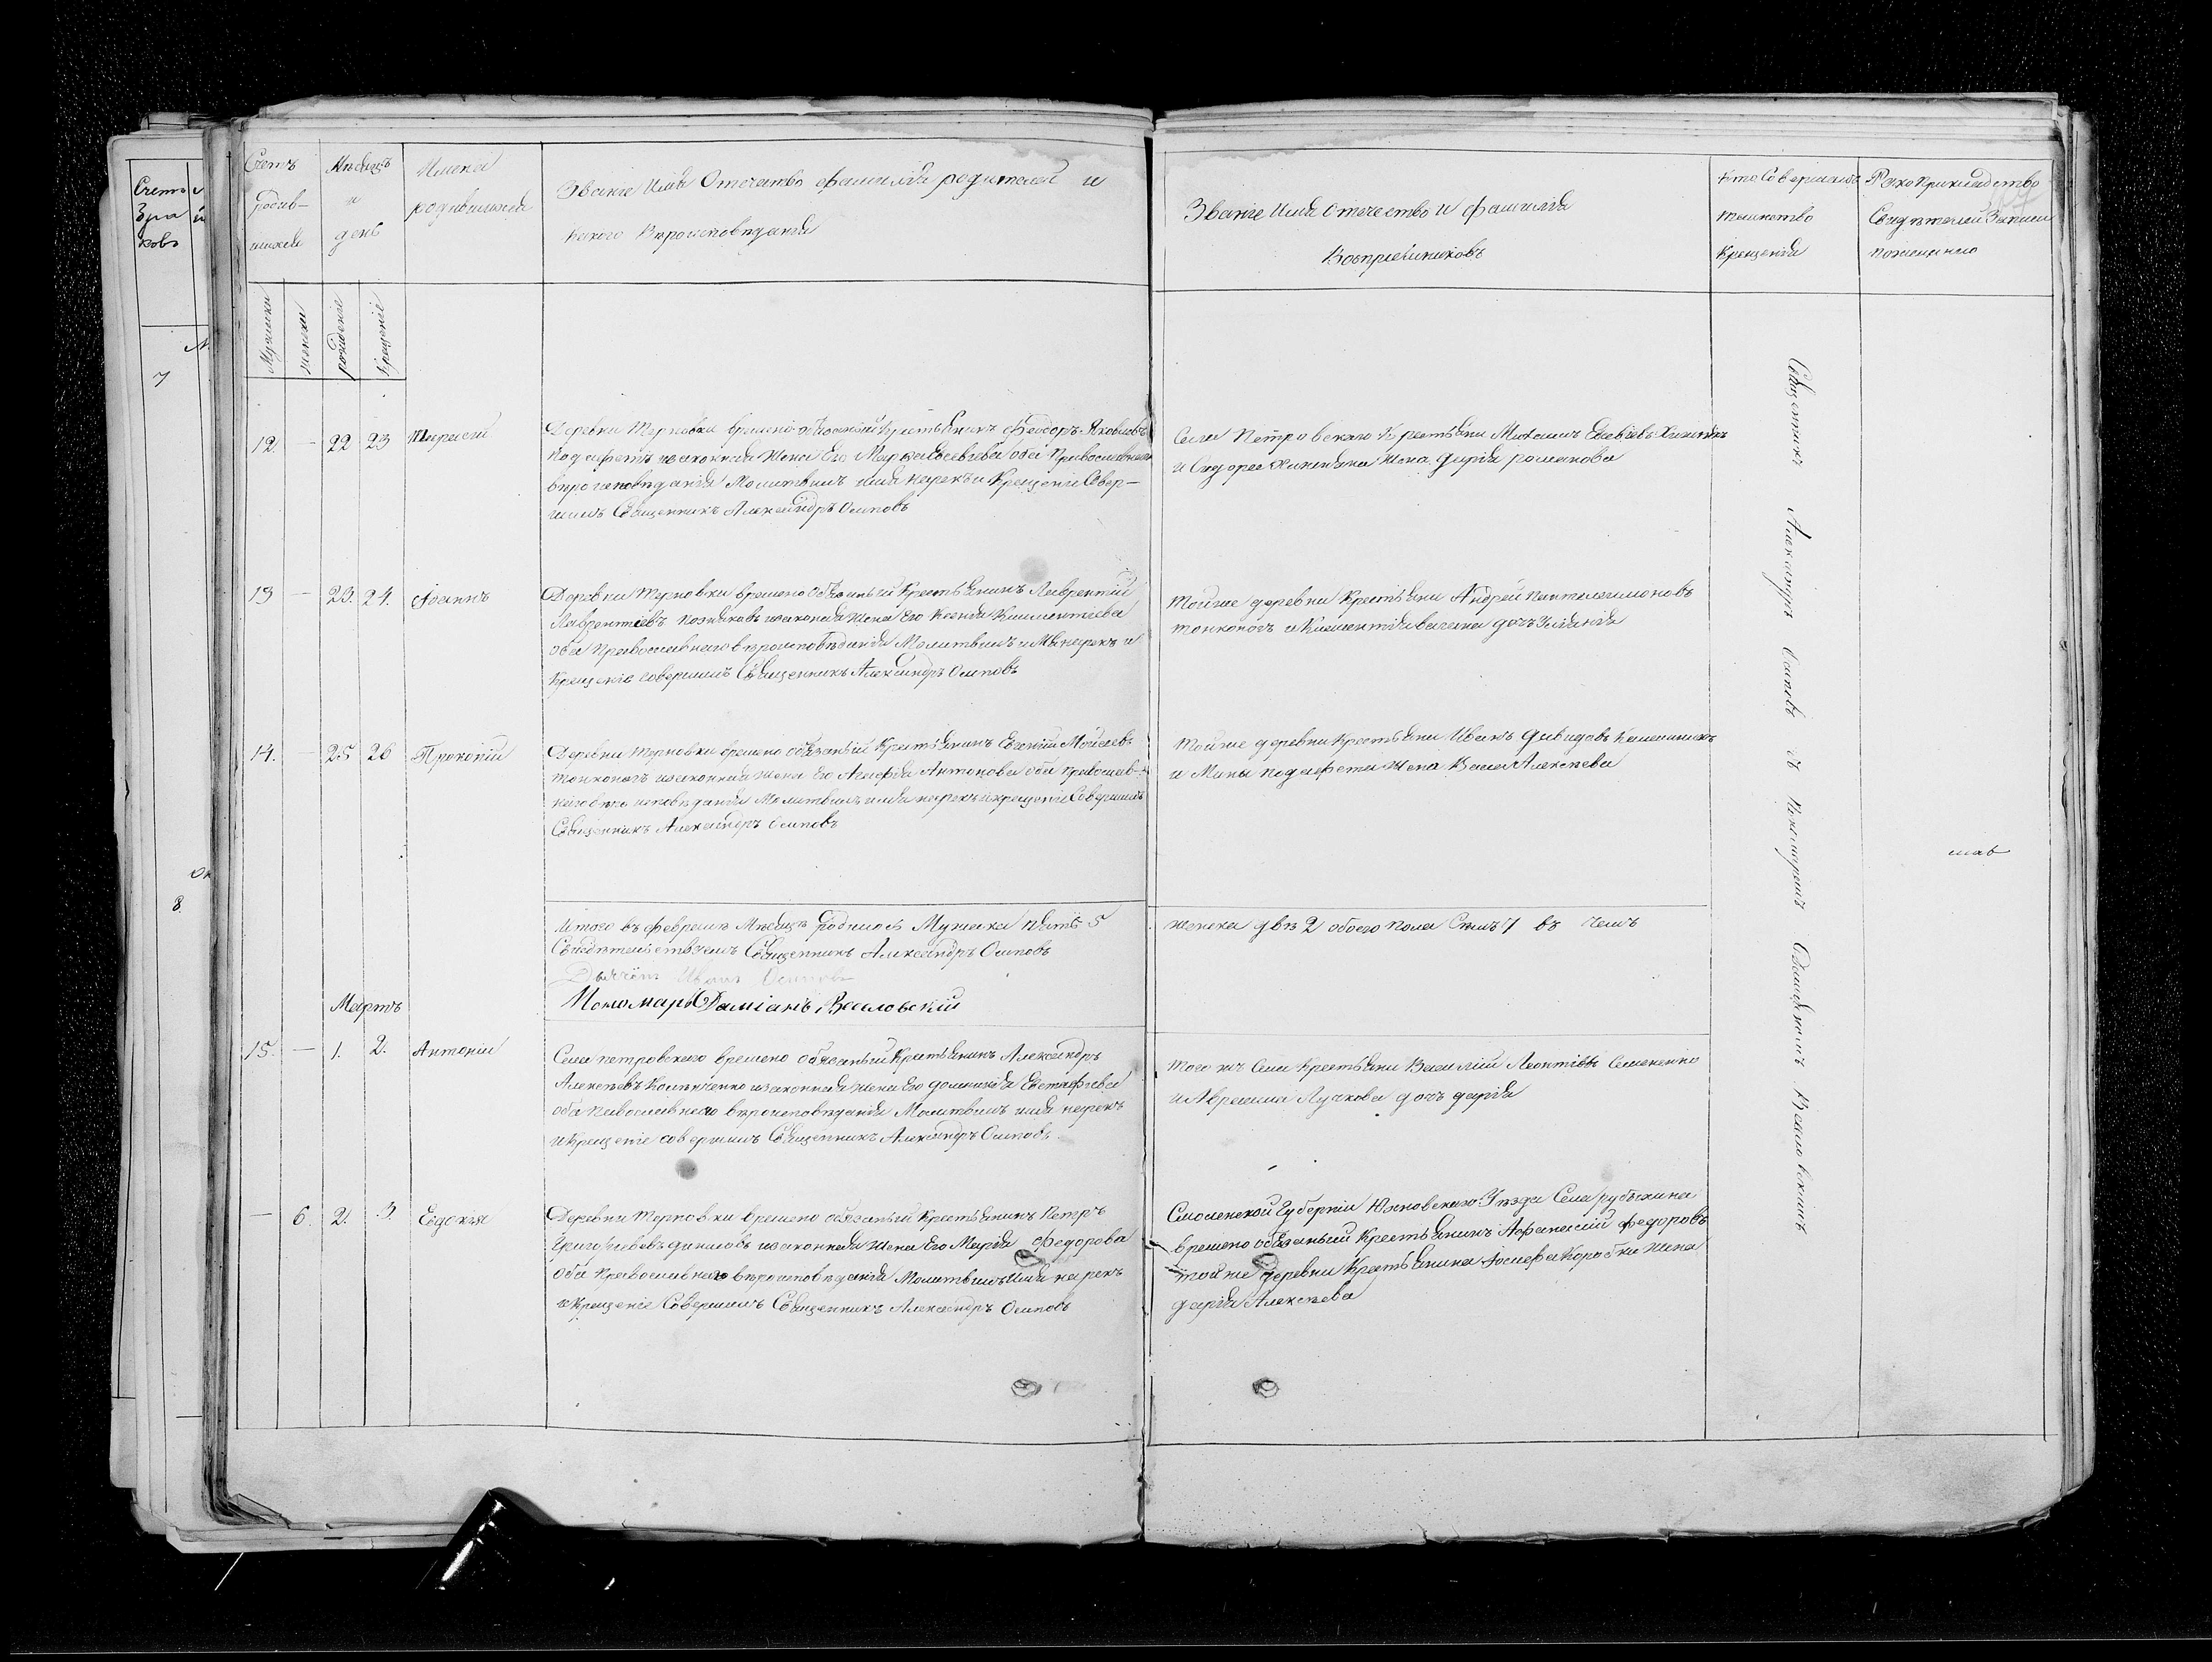 Счетъ
Зра
ковъ
7
8
Счетъ
родив-
шихся
Мѣсяцъ
и
день
Имена
родившихся
Званіе Имя Отечество фамилія родителей и
Какого Вѣроисповѣданія
Званіе Имя Отечество и фамилія
Воспріемниковъ
Кто Совершалъ
таинство
Крещенія
Рукоприкладство
Свидѣтелей Записи
по желанию
Мужеска
женска
рожденіе
крещеніе
12. — 22 23 Тарасій
Деревни Терновки временно обязаный Крестьянинъ Феодоръ Яковлевъ
и законная Жена Его Марфа Евсевіева оба Православнаго
вѣроисповѣданія Молитвилъ имя нарекъ и Крещеніе Совер-
шилъ Священникъ Александръ Осиповъ
Села Петровскаго Крестьяни Михаилъ Евсевіевъ
и Сидора жена Дарія романова
13 — 23. 24. Іоаннъ
Деревни Терновки временно Обязаный Крестьянинъ Лаврентий
Лаврентіевъ Позняковъ изаконная жена Его Ксенія Климентіева
оба Православнаго вѣроисповѣданія Молитвилъ имя нарекъ и
Крещеніе совершилъ Священникъ Александръ Осиповъ
Тойже деревни Крестьяни Андрей Пантелеимоновъ
тонконогъ и Климентія дочъ
14. — 25 26 Прокопій
Деревни Терновки временно обязаный Крестьянинъ Евгеній Мойсеевъ
тонконогъ изаконная жена Его Агафія Антонова оба православ-
наго вѣроисповѣданія Молитвилъ имя нарекъ икрещеніе Совершилъ
Священникъ Александръ Осиповъ
Тойже деревни Крестьяни Иванъ Давидовъ
и Мины жена Васса Алексѣева
Итого въ февралѣ Мѣсяцѣ родилось Мужеска пять 5
Свидѣтельствуемъ Священникъ Александръ Осиповъ
Дьячекъ Иванъ Осиповъ
Пономарь Даміанъ Веселовскій
женска двѣ 2 обоего пола Семь 7 въ чемъ
Мартъ
15. — 1. 2. Антоній
Села петровскаго временно обязаный Крестьянинъ Александръ
Алексѣевъ изаконная жена Его домникія Евстафіева
оба Павославнаго вѣроисповѣданія Молитвилъ имя нарекъ
икрещеніе совершилъ Священникъ Александръ Осиповъ
Того жъ Села Крестьяни Василій Леонтіевъ Семененко
и Авраама Лучкова дочъ дарія
— 6. 2. 3. Евдокия
Деревни Терновки временно обязаный Крестьянинъ Петръ
Григоріевъ даниловъ изаконная жена Его Марія Федорова
оба Православнаго вѣроисповѣданія Молитвилъ Имя нарекъ
икрещеніе Совершилъ Священникъ Александръ Осиповъ
Смоленской Губерніи Юхновскаго Уѣзда Села рубыхина
временно обязаный Крестьянинъ Афанасий федоровъ
тойже деревни Крестьянина Іосифа Коробки жена
дарія Алексѣева
Священникъ Александръ Осиповъ съ Пономаремъ Даміаномъ Веселовскимъ